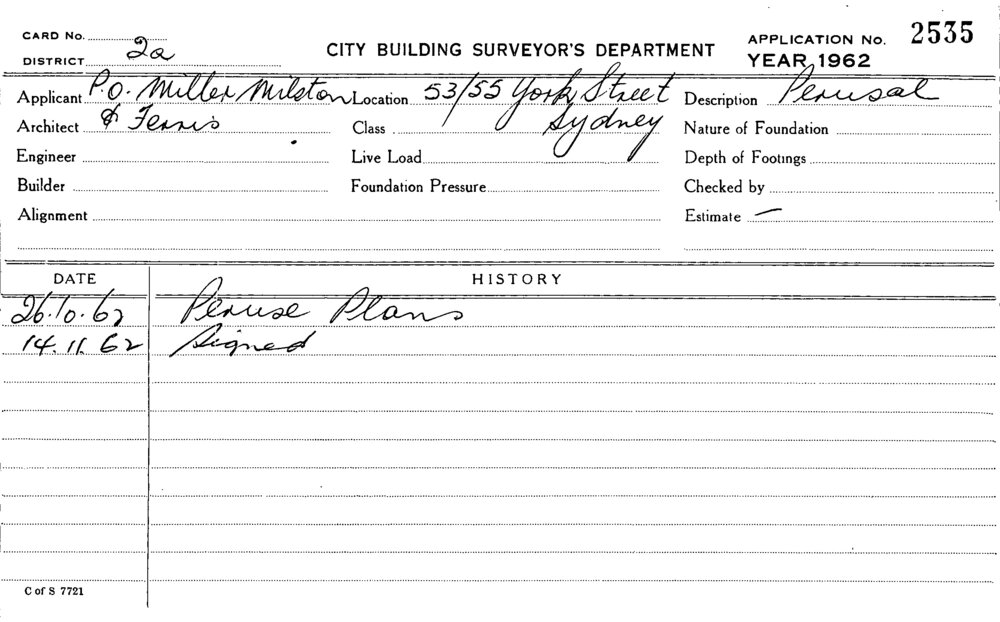 CARD No.
DISTRICT 2a
CITY BUILDING SURVEYOR'S DEPARTMENT
APPLICATION No. 2535
YEAR 1962
Applicant P.O. Miller Milston Location 53/55 York Street Description Perusal
Architect & Ferris Class Sydney Nature of Foundation
Engineer Live Load Depth of Footings
Builder Foundation Pressure Checked by
Alignment Estimate —
DATE HISTORY
26.10.62 Peruse Plans
14.11.62 Signed
C of S 7721